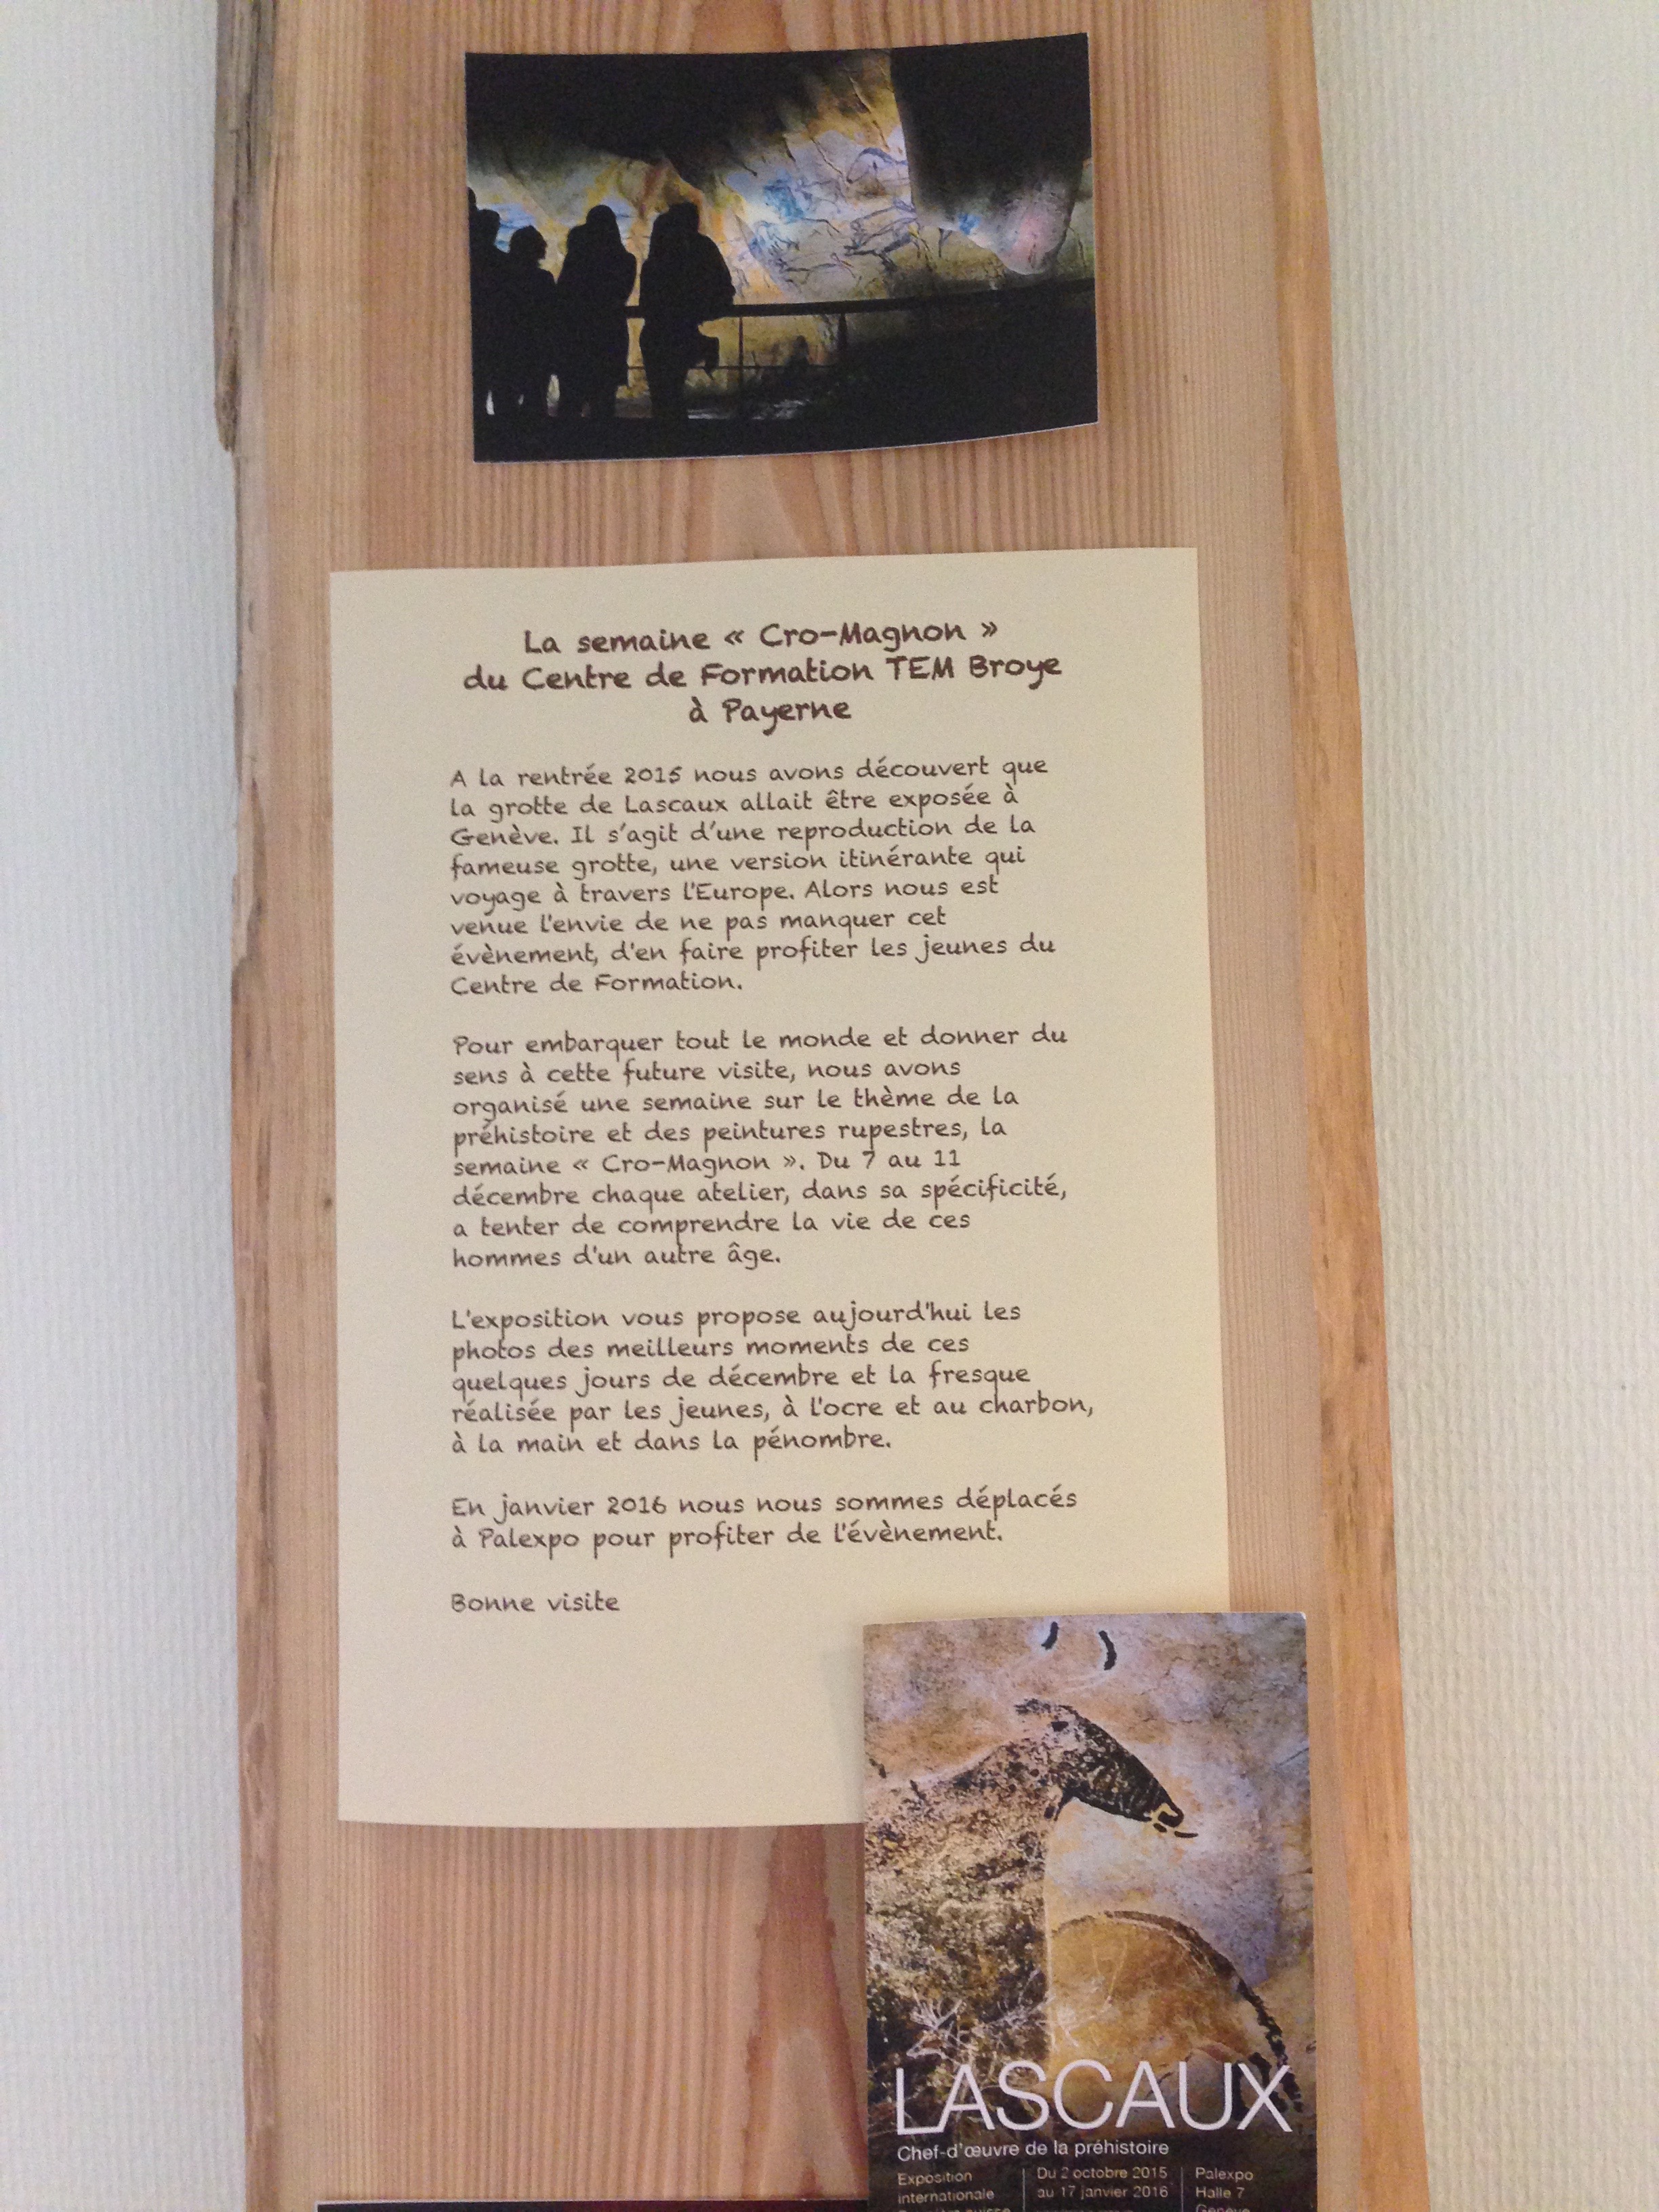 La semaine « Cro-Magnon »
du Centre de Formation TEM Broye
à Payerne
A la rentrée 2015 nous avons découvert que
la grotte de Lascaux allait être exposée à
Genève. Il s'agit d'une reproduction de la
fameuse grotte, une version itinérante qui
voyage à travers l'Europe. Alors nous est
venue l'envie de ne pas manquer cet
évènement, d'en faire profiter les jeunes du
Centre de Formation.
Pour embarquer tout le monde et donner du
sens à cette future visite, nous avons
organisé une semaine sur le thème de la
préhistoire et des peintures rupestres, la
semaine « Cro-Magnon ». Du 7 au 11
décembre chaque atelier, dans sa spécificité,
a tenter de comprendre la vie de ces
hommes d'un autre âge.
L'exposition vous propose aujourd'hui les
photos des meilleurs moments de ces
quelques jours de décembre et la fresque
réalisée par les jeunes, à l'ocre et au charbon,
à la main et dans la pénombre.
En janvier 2016 nous nous sommes déplacés
à Palexpo pour profiter de l'évènement.
Bonne visite
LASCAUX
Chef-d'œuvre de la préhistoire
Exposition
internationale
Du 2 octobre 2015
au 17 janvier 2016
Palexpo
Halle 7